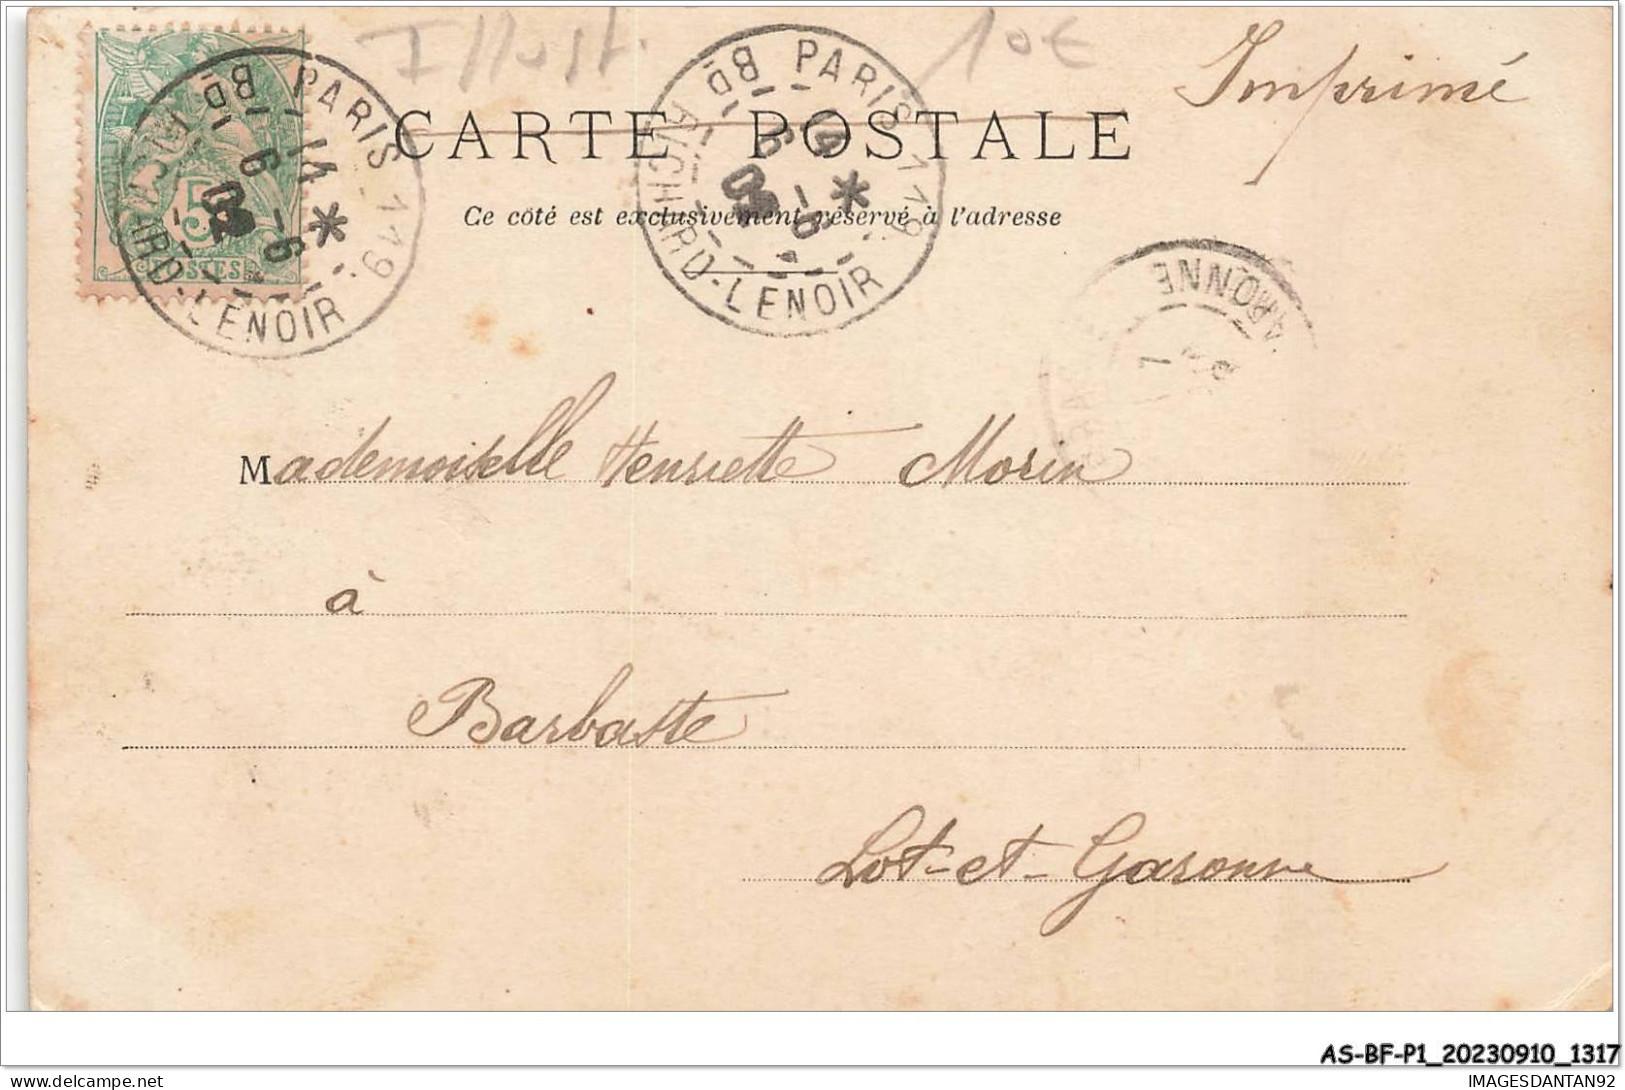 Illust.
10€
Imprimé
CARTE POSTALE
Ce côté est exclusivement réservé à l'adresse
PARIS 119
14
6 - 6
02
BD RICHARD-LENOIR
POSTES
5
PARIS 119
14
6 - 6
BD RICHARD-LENOIR
GARONNE
Mademoiselle Henriette Morin
à
Barbaste
Lot-et-Garonne
AS-BF-P1_20230910_1317
IMAGESDANTAN92